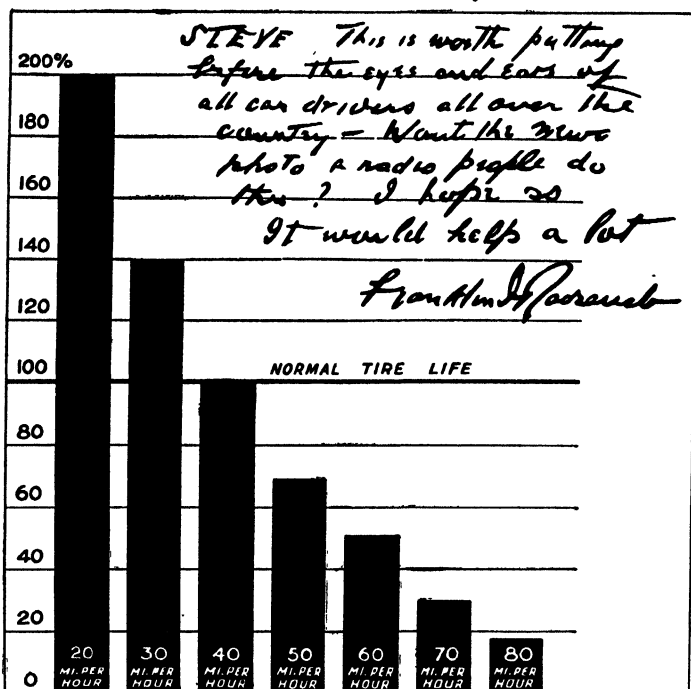 STEVE This is worth putting
before the eyes and ears of
all car drivers all over the
country - Want the news
photo & radio people do
this? I hope so
It would help a lot
Franklin D Roosevelt
200%
180
160
140
120
100
NORMAL TIRE LIFE
80
60
40
20
0
20 MI. PER HOUR
30 MI. PER HOUR
40 MI. PER HOUR
50 MI. PER HOUR
60 MI. PER HOUR
70 MI. PER HOUR
80 MI. PER HOUR